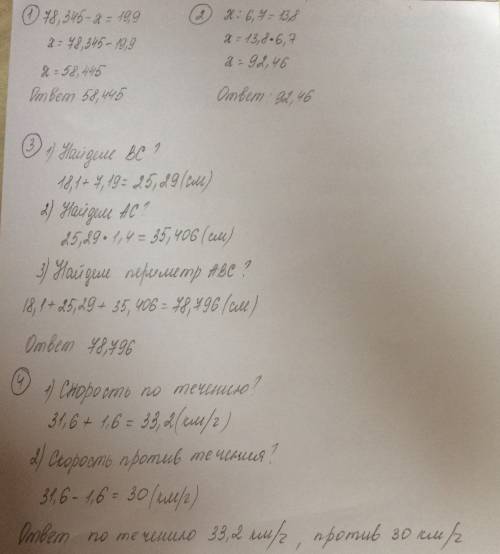 ① 78,345 - x = 19,9
x = 78,345 - 19,9
x = 58,445
Ответ 58,445
② x : 6,7 = 13,8
x = 13,8 • 6,7
x = 92,46
Ответ: 92,46
③ 1) Найдем BC?
18,1 + 7,19 = 25,29 (см)
2) Найдем AC?
25,29 • 1,4 = 35,406 (см)
3) Найдем периметр ABC?
18,1 + 25,29 + 35,406 = 78,796 (см)
Ответ 78,796
④ 1) Скорость по течению?
31,6 + 1,6 = 33,2 (км/г)
2) Скорость против течения?
31,6 - 1,6 = 30 (км/г)
Ответ по течению 33,2 км/г, против 30 км/г